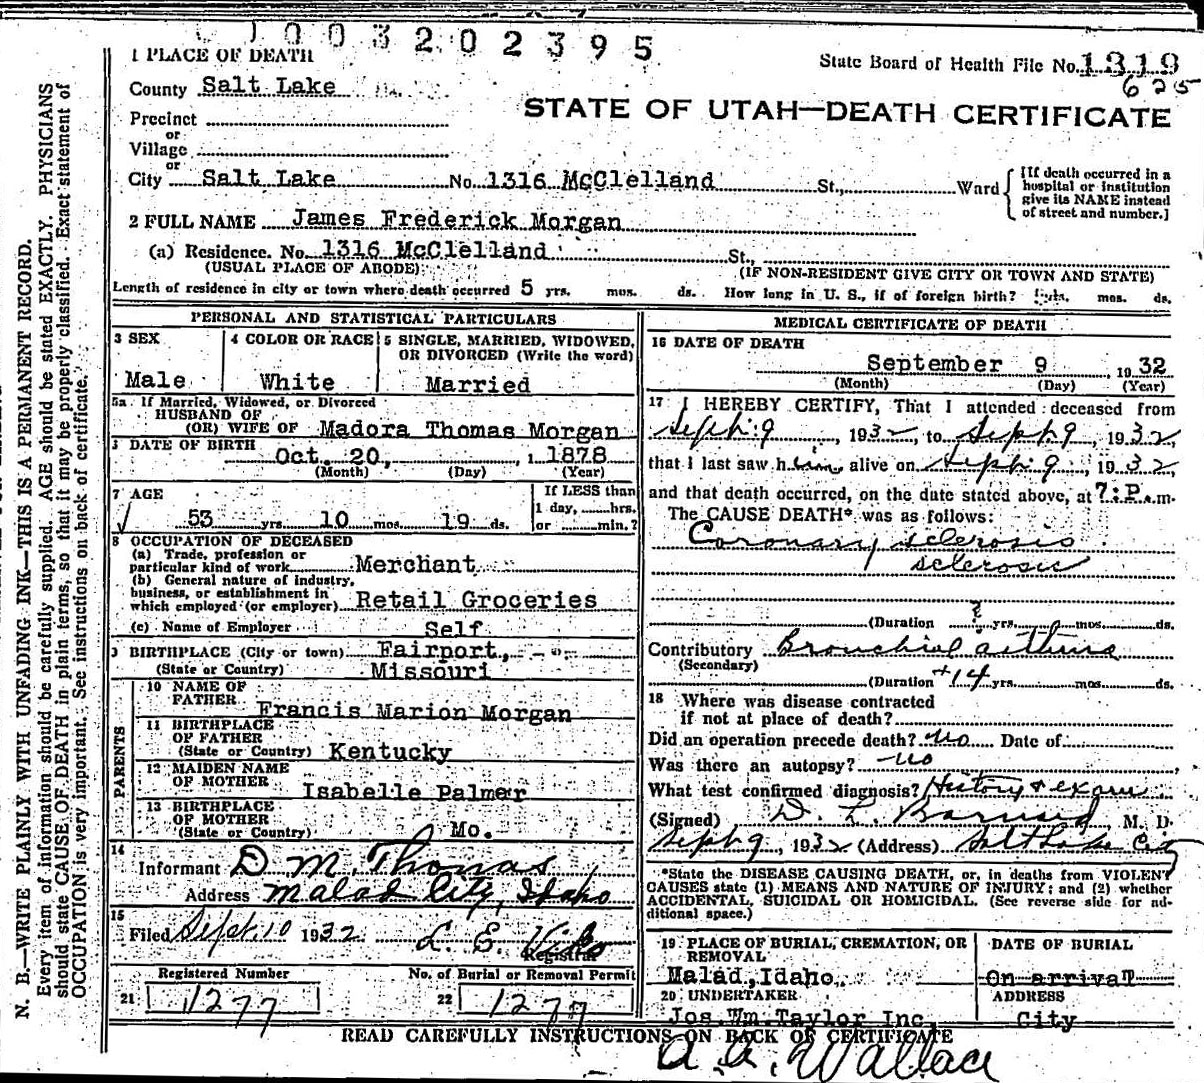 1003202395
1 PLACE OF DEATH
State Board of Health File No. 1319
625
County Salt Lake
STATE OF UTAH—DEATH CERTIFICATE
Precinct
or
Village
or
City Salt Lake No. 1316 McClelland St., Ward
[If death occurred in a hospital or institution give its NAME instead of street and number.]
2 FULL NAME James Frederick Morgan
(a) Residence. No. 1316 McClelland St.,
(USUAL PLACE OF ABODE) (IF NON-RESIDENT GIVE CITY OR TOWN AND STATE)
Length of residence in city or town where death occurred 5 yrs. mos. ds. How long in U. S., if of foreign birth? yrs. mos. ds.
PERSONAL AND STATISTICAL PARTICULARS
3 SEX
Male
4 COLOR OR RACE
White
5 SINGLE, MARRIED, WIDOWED,
OR DIVORCED (Write the word)
Married
5a If Married, Widowed, or Divorced
HUSBAND OF
(OR) WIFE OF Madora Thomas Morgan
DATE OF BIRTH
Oct. 20, 1878
(Month) (Day) (Year)
7 AGE
53 yrs. 10 mos. 19 ds.
If LESS than
1 day, hrs.
or min.?
8 OCCUPATION OF DECEASED
(a) Trade, profession or
particular kind of work Merchant
(b) General nature of industry,
business, or establishment in
which employed (or employer) Retail Groceries
(c) Name of Employer Self
9 BIRTHPLACE (City or town) Fairport,
(State or Country) Missouri
PARENTS
10 NAME OF
FATHER Francis Marion Morgan
11 BIRTHPLACE
OF FATHER
(State or Country) Kentucky
12 MAIDEN NAME
OF MOTHER Isabelle Palmer
13 BIRTHPLACE
OF MOTHER
(State or Country) Mo.
14
Informant D M. Thomas
Address Malad City, Idaho
15
Filed Sept. 10 1932 L. E. Viko
Registrar
Registered Number
21 1277
No. of Burial or Removal Permit
22 1277
MEDICAL CERTIFICATE OF DEATH
16 DATE OF DEATH
September 9, 1932
(Month) (Day) (Year)
17 I HEREBY CERTIFY, That I attended deceased from
Sept. 9, 1932, to Sept. 9, 1932,
that I last saw him alive on Sept. 9, 1932
and that death occurred, on the date stated above, at 7:P.m.
The CAUSE DEATH* was as follows:
Coronary sclerosis
sclerosis
(Duration ? yrs. mos. ds.
Contributory Bronchial asthma
(Secondary)
(Duration +14 yrs. mos. ds.
18 Where was disease contracted
if not at place of death?
Did an operation precede death? no Date of
Was there an autopsy? no
What test confirmed diagnosis? History & exam
(Signed) D. L. Barnard, M. D.
Sept 9, 1932 (Address) Salt Lake City
*State the DISEASE CAUSING DEATH, or, in deaths from VIOLENT
CAUSES state (1) MEANS AND NATURE OF INJURY; and (2) whether
ACCIDENTAL, SUICIDAL OR HOMICIDAL. (See reverse side for ad-
ditional space.)
19 PLACE OF BURIAL, CREMATION, OR
REMOVAL
Malad, Idaho.
DATE OF BURIAL
On arrival
20 UNDERTAKER
Jos. Wm. Taylor Inc.
ADDRESS
City
READ CAREFULLY INSTRUCTIONS ON BACK OF CERTIFICATE
A. A. Wallace
N. B.—WRITE PLAINLY WITH UNFADING INK—THIS IS A PERMANENT RECORD.
Every item of information should be carefully supplied. AGE should be stated EXACTLY. PHYSICIANS
should state CAUSE OF DEATH in plain terms, so that it may be properly classified. Exact statement of
OCCUPATION is very important. See instructions on back of certificate.